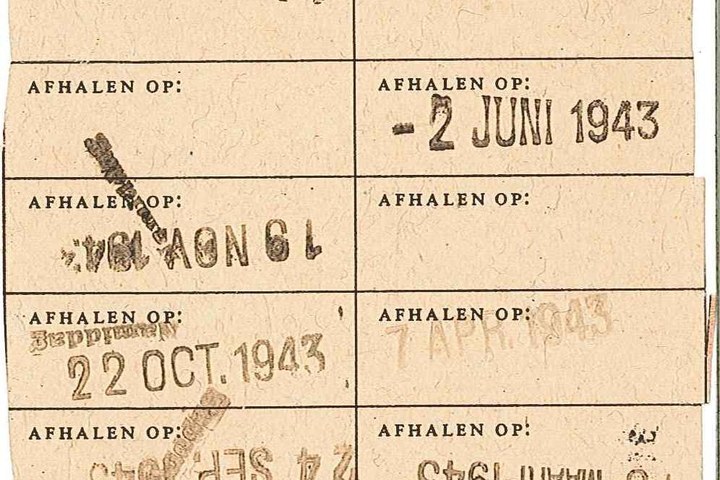 AFHALEN OP:
AFHALEN OP:
- 2 JUNI 1943
AFHALEN OP:
19 NOV
AFHALEN OP:
AFHALEN OP:
Namiddag
22 OCT. 1943
AFHALEN OP:
7 APR. 1943
AFHALEN OP:
24 SEP. 1943
AFHALEN OP:
MAART 1943